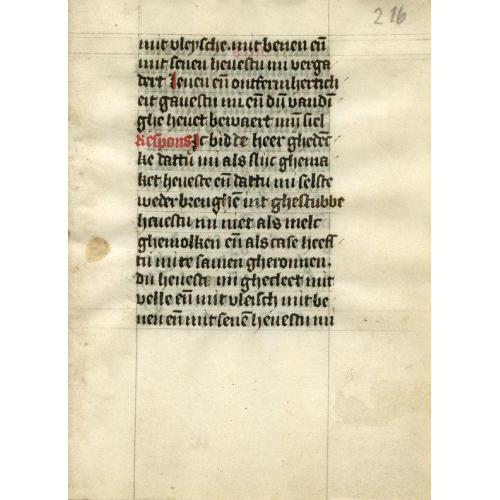 216
mit vleysche. mit benen eñ
mit senen heuestu mi verga
dert Leuen eñ ontfermhertich
eit gauestu mi eñ dijn vandī
ghe heuet bewaert mijn siel
Respons Jc bidde heer ghedenc
ke dattu mi als slijc ghema
ket heueste eñ dattu mi selste
weder brenghē int ghestubbe
heuestu mi niet als melc
ghemolken eñ als case heefs
tu mi te samen gheronnen.
Du heueste mi ghecleet mit
velle eñ mit vleisch mit be
nen eñ mit senē heuestu mi